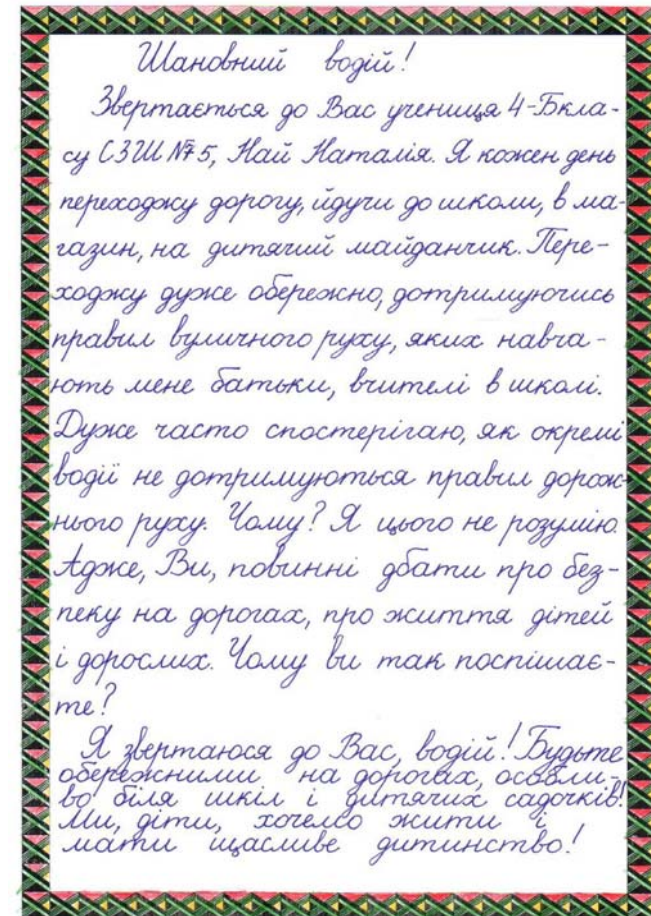 Шановний водій!
Звертається до Вас учениця 4-Бкла-
су СЗШ №5, Най Наталія. Я кожен день
переходжу дорогу, йдучи до школи, в ма-
газин, на дитячий майданчик. Пере-
ходжу дуже обережно, дотримуючись
правил вуличного руху, яких навча-
ють мене батьки, вчителі в школі.
Дуже часто спостерігаю, як окремі
водії не дотримуються правил дорож-
нього руху. Чому? Я цього не розумію.
Адже, Ви, повинні дбати про без-
пеку на дорогах, про життя дітей
і дорослих. Чому ви так поспішає-
те?
Я звертаюся до Вас, водій! Будьте
обережними на дорогах, особли-
во біля шкіл і дитячих садочків!
Ми, діти, хочемо жити і
мати щасливе дитинство!